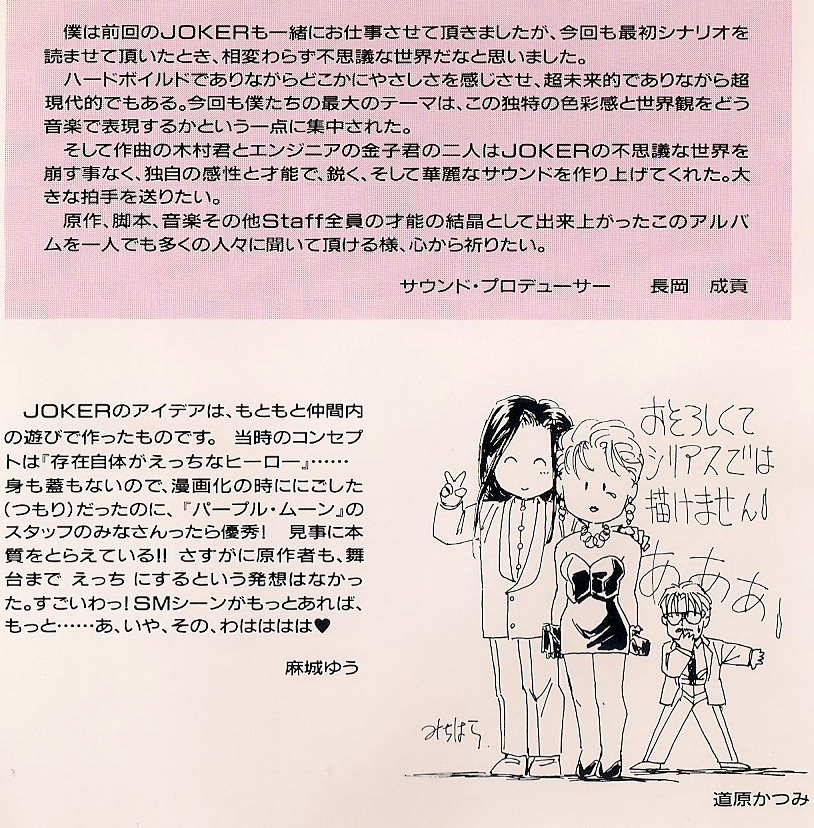 僕は前回のJOKERも一緒にお仕事させて頂きましたが、今回も最初シナリオを
読ませて頂いたとき、相変わらず不思議な世界だなと思いました。
ハードボイルドでありながらどこかにやさしさを感じさせ、超未来的でありながら超
現代的でもある。今回も僕たちの最大のテーマは、この独特の色彩感と世界観をどう
音楽で表現するかという一点に集中された。
そして作曲の木村君とエンジニアの金子君の二人はJOKERの不思議な世界を
崩す事なく、独自の感性と才能で、鋭く、そして華麗なサウンドを作り上げてくれた。大
きな拍手を送りたい。
原作、脚本、音楽その他Staff全員の才能の結晶として出来上がったこのアルバ
ムを一人でも多くの人々に聞いて頂ける様、心から祈りたい。
サウンド・プロデューサー　長岡　成貢
JOKERのアイデアは、もともと仲間内
の遊びで作ったものです。 当時のコンセプ
トは『存在自体がえっちなヒーロー』……
身も蓋もないので、漫画化の時ににごした
(つもり)だったのに、『パープル・ムーン』の
スタッフのみなさんったら優秀！ 見事に本
質をとらえている!! さすがに原作者も、舞
台まで えっち にするという発想はなかっ
た。すごいわっ！SMシーンがもっとあれば、
もっと……あ、いや、その、わはははは♥
麻城ゆう
おそろしくて
シリアスでは
描けません!
あああ!
みちはら.
道原かつみ